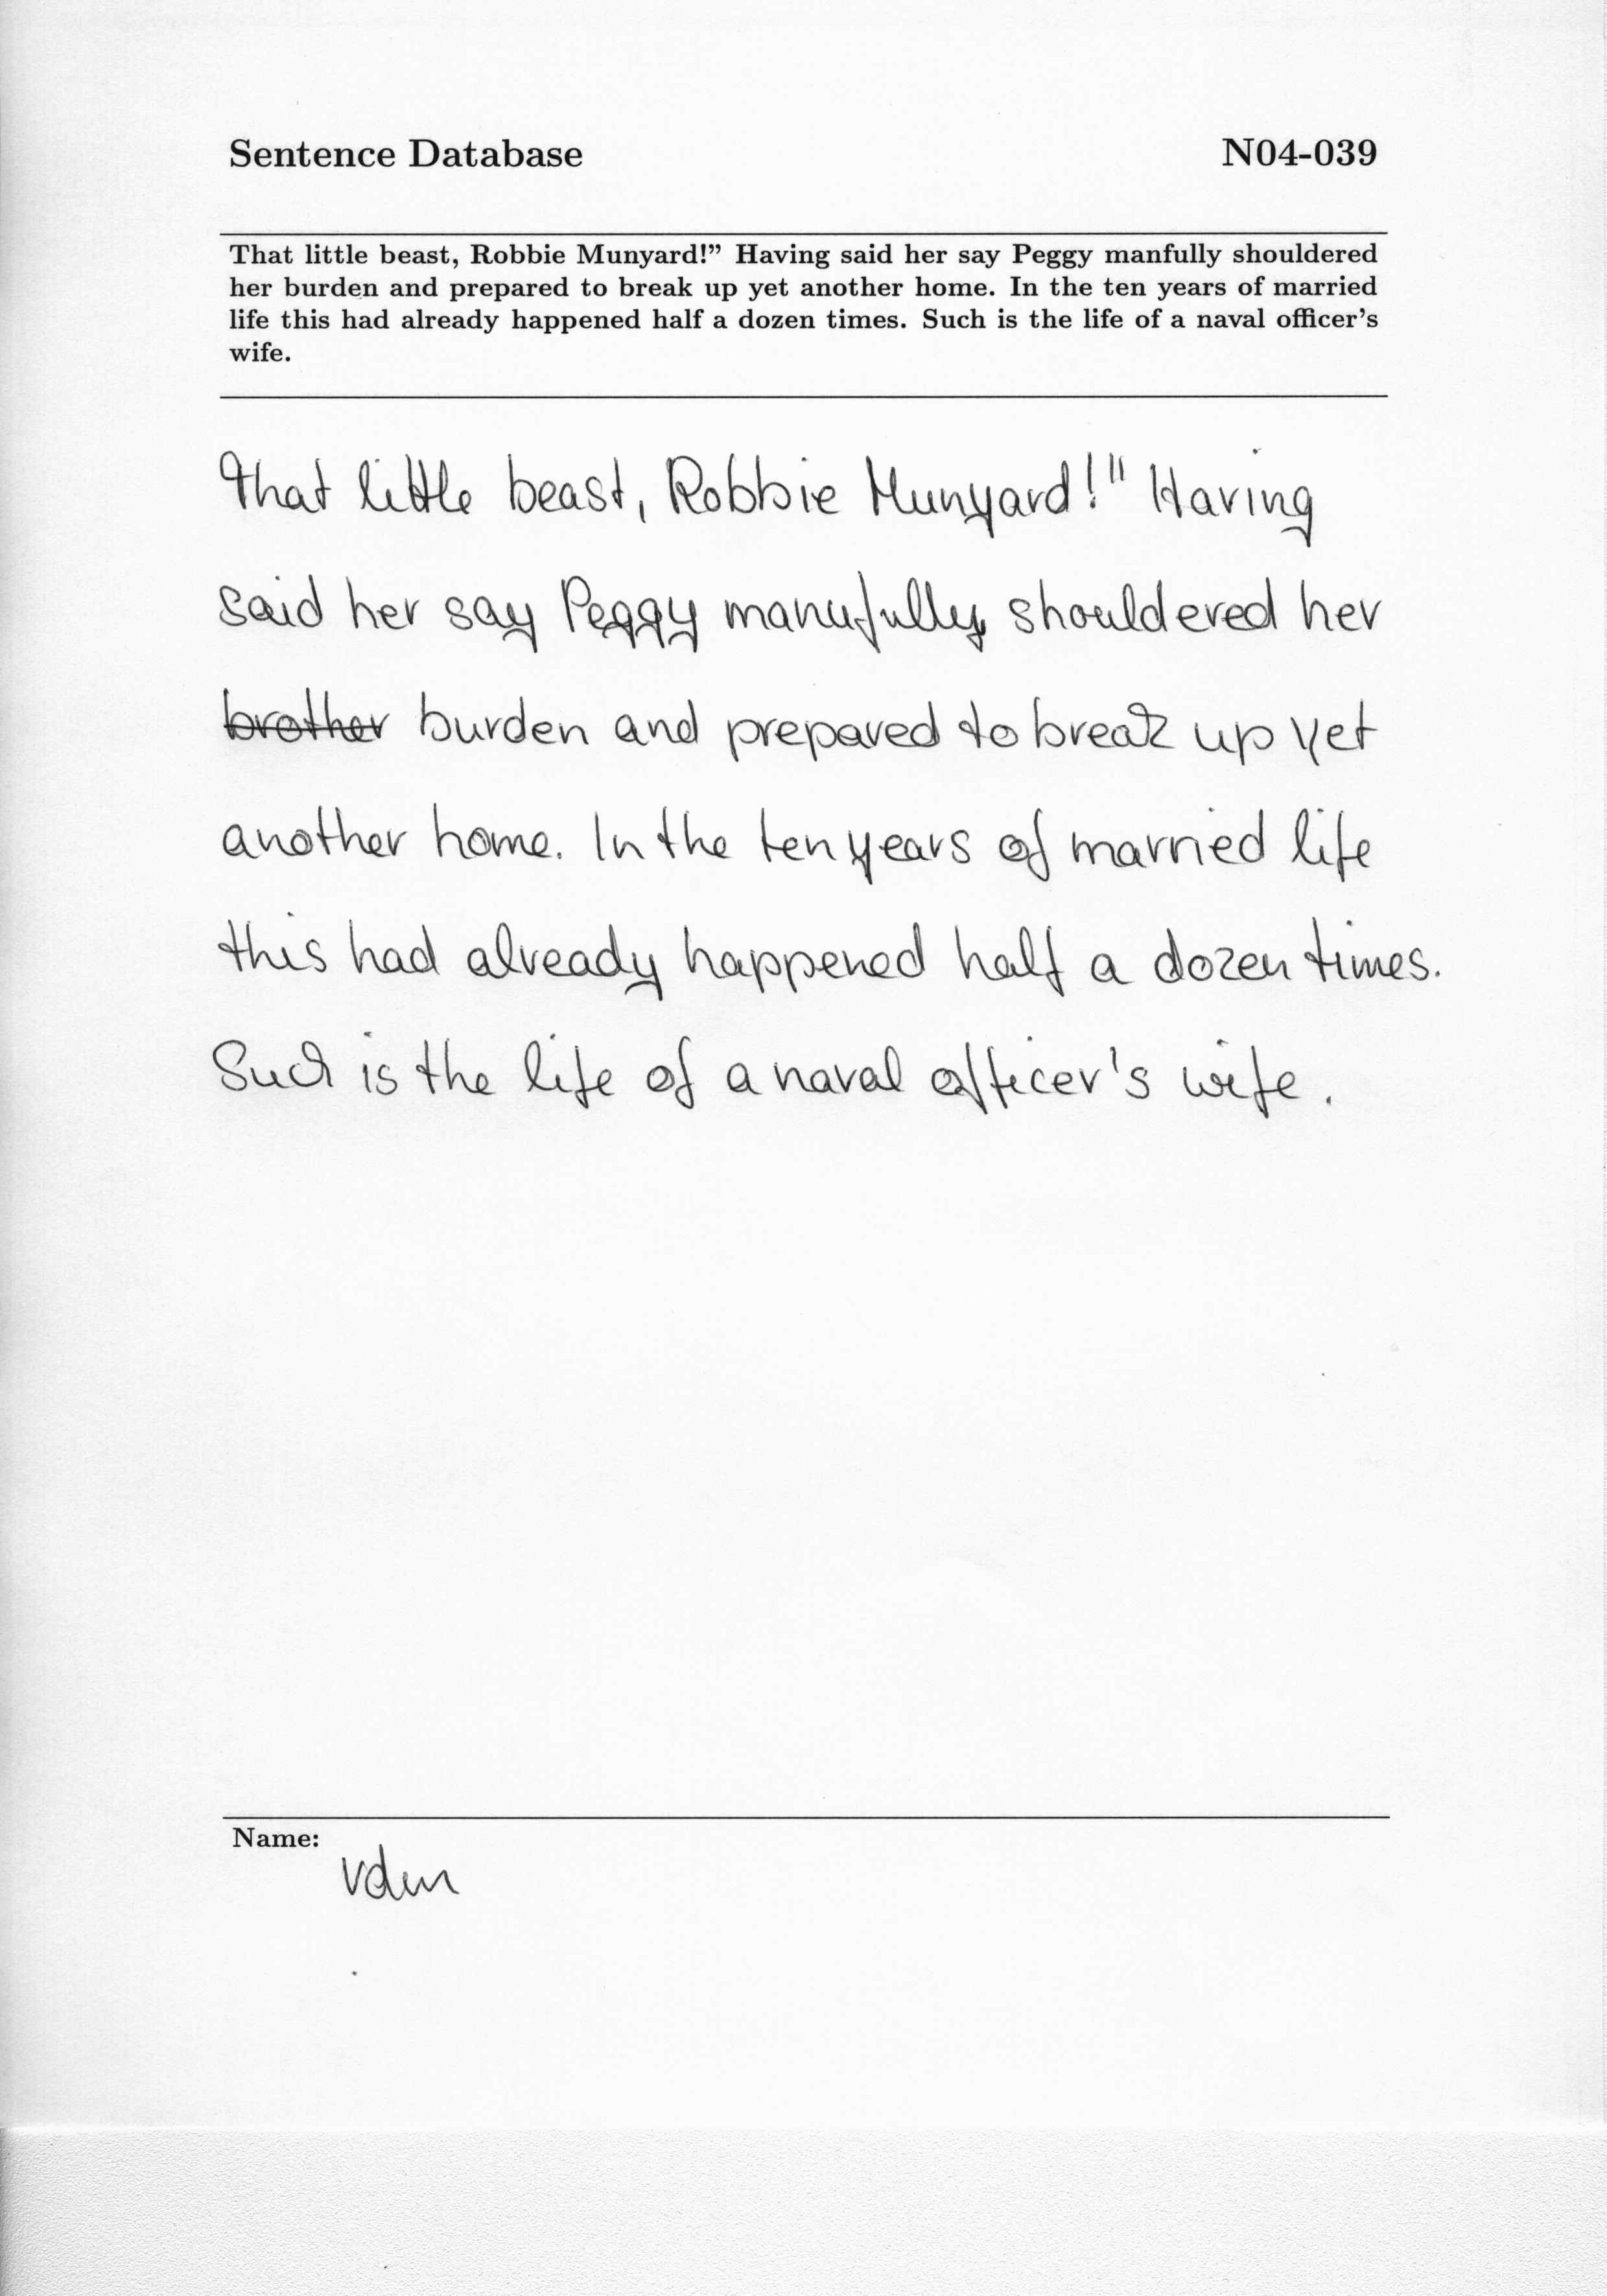 Sentence Database N04-039
That little beast, Robbie Munyard!” Having said her say Peggy manfully shouldered
her burden and prepared to break up yet another home. In the ten years of married
life this had already happened half a dozen times. Such is the life of a naval officer’s
wife.
That little beast, Robbie Munyard!" Having
said her say Peggy manufully shouldered her
brother burden and prepared to break up yet
another home. In the ten years of married life
this had already happened half a dozen times.
Such is the life of a naval officer's wife.
Name: